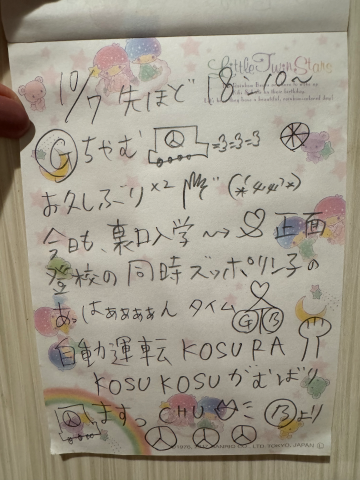 Little Twin Stars
10/7 先ほど 18:10〜
Gちゃむ =3=3=3
お久しぶり×2
今日も、裏口入学〜→ 正面
登校の同時ズッポリン子の
あっはぁぁぁぁん タイム G B
自動運転 KOSURA
KOSU KOSU がむばり
します。CHU Bより
TOKYO, JAPAN